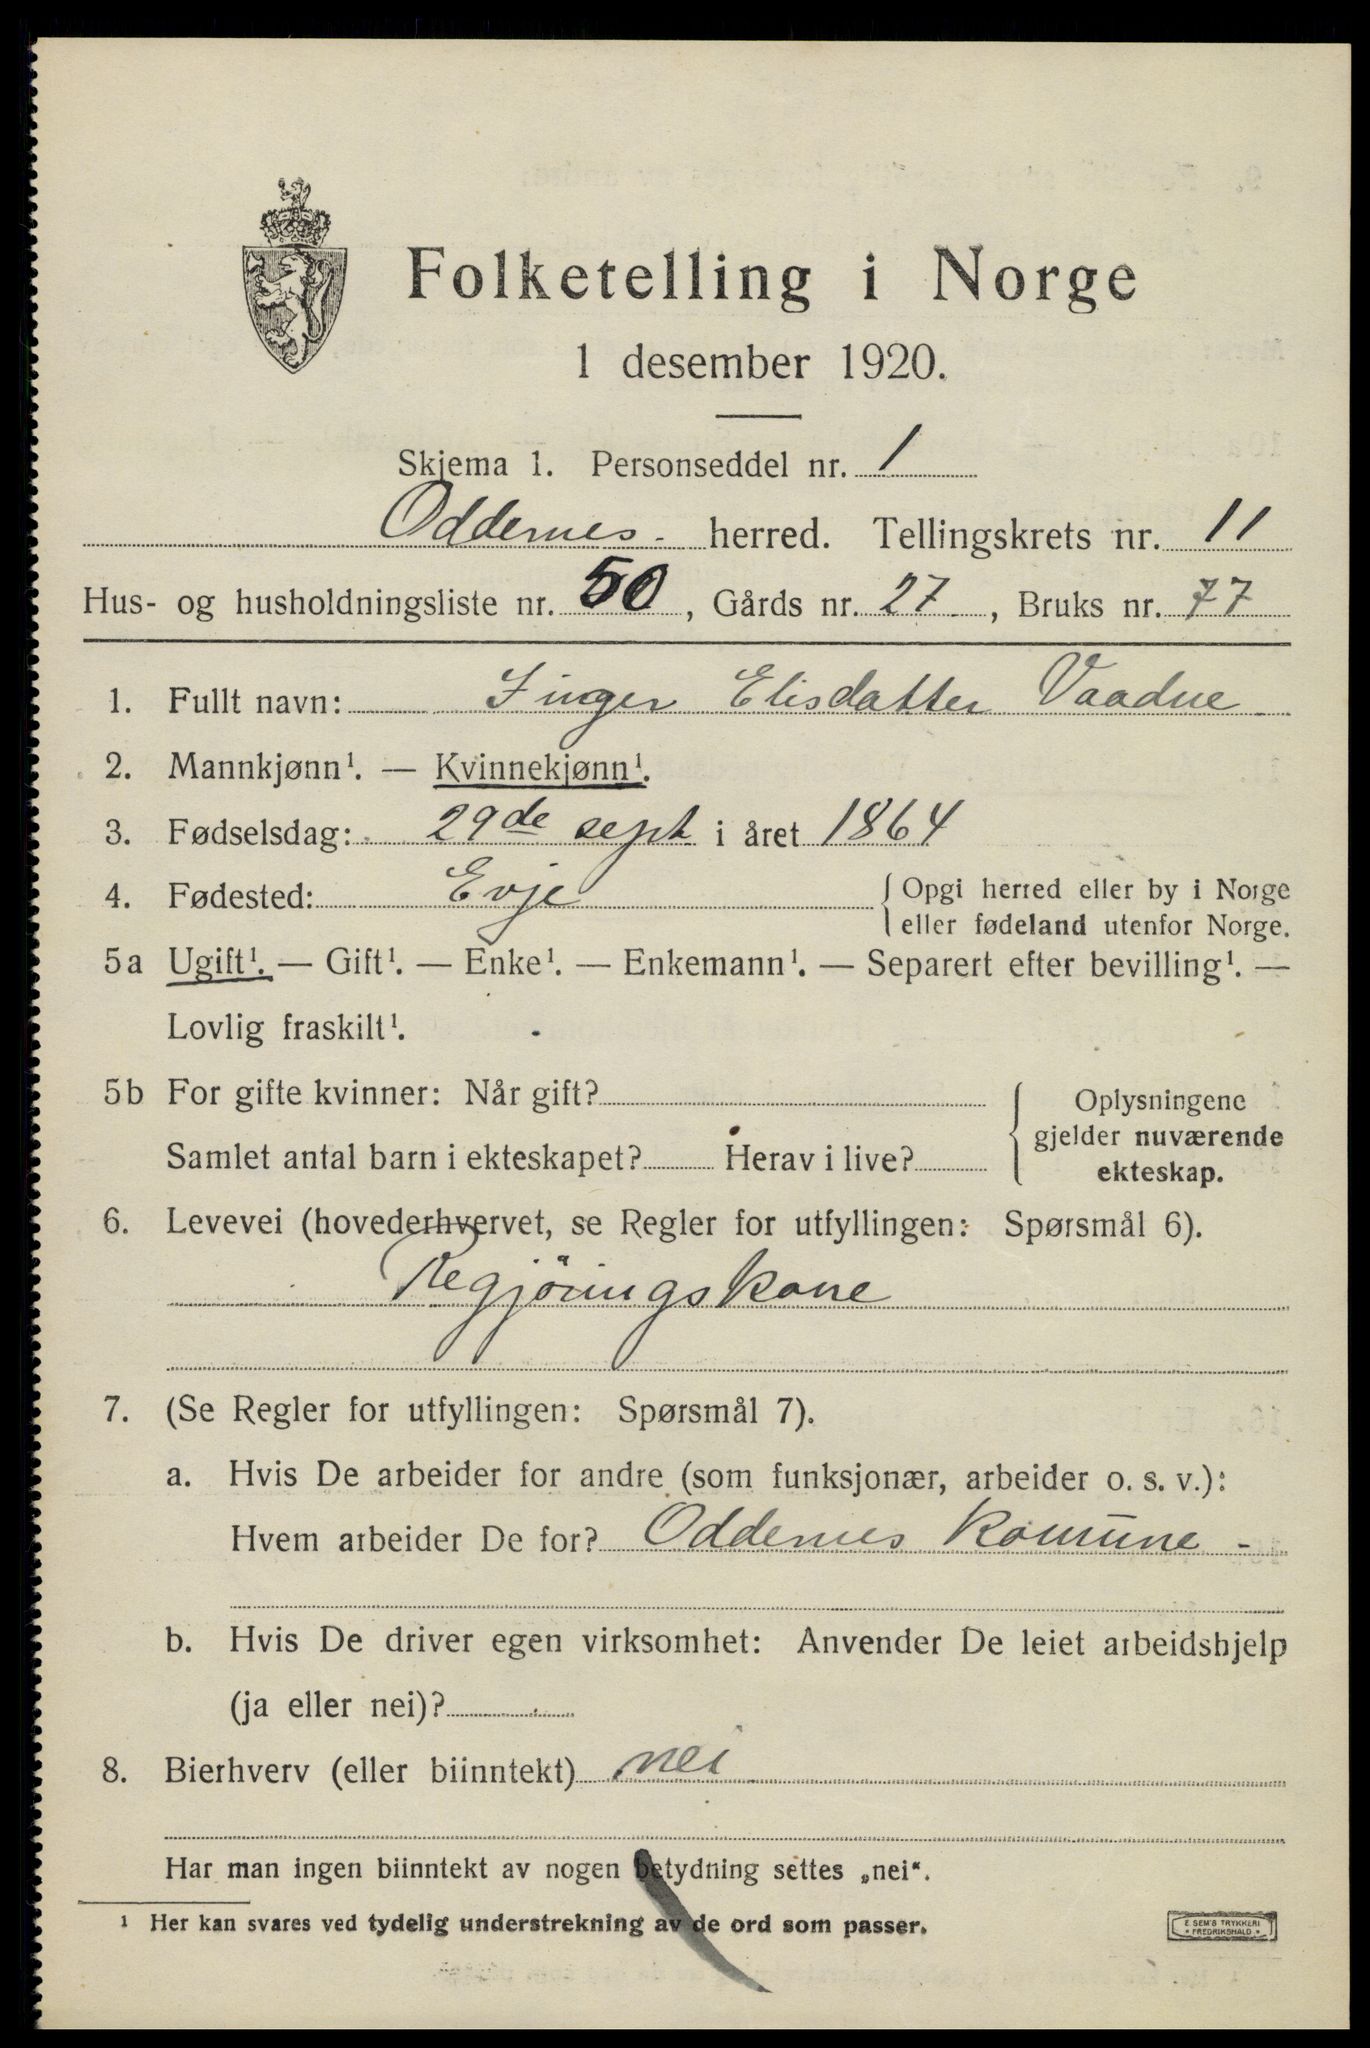 Folketelling i Norge
1 desember 1920.
Skjema 1. Personseddel nr. 1
Oddernes. herred. Tellingskrets nr. 11
Hus- og husholdningsliste nr. 50, Gårds nr. 27, Bruks nr. 77
1. Fullt navn: Inger Elisdatter Vaadne
2. Mannkjønn¹. — Kvinnekjønn¹.
3. Fødselsdag: 29de sept i året 1864
4. Fødested: Evje { Opgi herred eller by i Norge
eller fødeland utenfor Norge.
5a Ugift¹. — Gift¹. — Enke¹. — Enkemann¹. — Separert efter bevilling¹. —
Lovlig fraskilt¹.
5b For gifte kvinner: Når gift?
Samlet antal barn i ekteskapet? Herav i live?
Oplysningene
gjelder nuværende
ekteskap.
6. Levevei (hovederhvervet, se Regler for utfyllingen: Spørsmål 6).
Regjöringskone
7. (Se Regler for utfyllingen: Spørsmål 7).
a. Hvis De arbeider for andre (som funksjonær, arbeider o. s. v.):
Hvem arbeider De for? Oddernes Komune -
b. Hvis De driver egen virksomhet: Anvender De leiet arbeidshjelp
(ja eller nei)?
8. Bierhverv (eller biinntekt) nei
Har man ingen biinntekt av nogen betydning settes „nei“.
¹ Her kan svares ved tydelig understrekning av de ord som passer.
E SEM'S TRYKKERI
• FREDRIKSHALD •